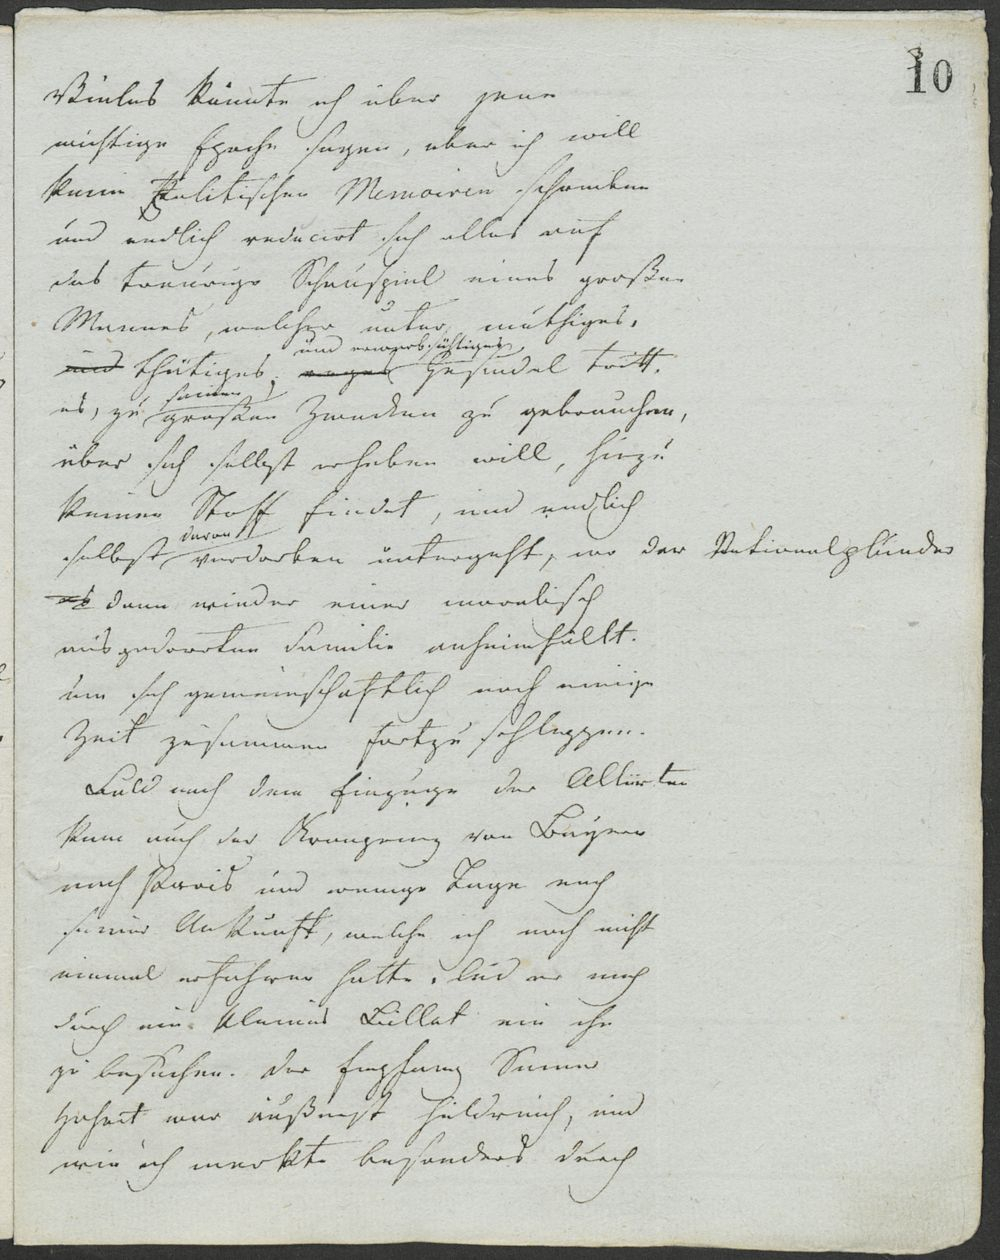 10
Vieles könnte ich über jene
wichtige Epoche sagen, aber ich will
keine Politischen Memoiren schreiben
und endlich reducirt sich alles auf
das traurige Schauspiel eines großen
Mannes, welcher unter müthiges,
und erwerbsüchtiges
und thätiges, Gesindel tritt,
seinen
es, zu großen Zwecken zu gebrauchen,
über sich selbst erheben will, hiezu
keinen Stoff findet, und endlich
daran
selbst verdorben untergeht, wo der Nationalplunder
als dann wieder einer moralisch
ausgedorrten Familie anheimfällt.
um sich gemeinschaftlich noch einige
Zeit zusammen fortzuschleppen.
Bald nach dem Einzuge der Alliirten
kam auch der Kronprinz von Bayern
nach Paris und wenige Tage nach
seiner Ankunft, welche ich noch nicht
einmal erfahren hatte, lud er mich
durch ein kleines Billet ein ihn
zu besuchen. Der Empfang Seiner
Hoheit war äußerst huldreich, und
wie ich merkte besonders durch